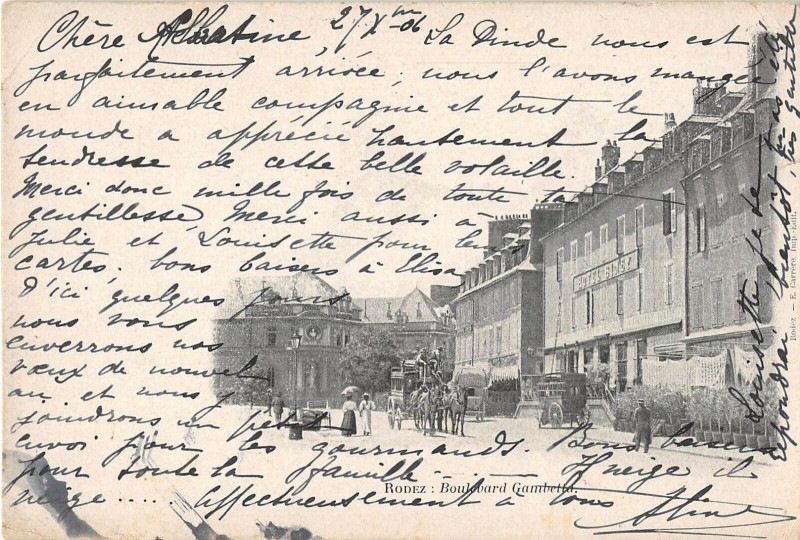 Chère 27 Xbre 06
La Dinde nous est
parfaitement arrivée; nous l'avons mangée
en aimable compagnie et tout le
monde a apprécié hautement la
tendresse de cette belle volaille.
Merci donc mille fois de toute ta
gentillesse. Merci aussi à
Julie et Louisette pour leurs
cartes; bons baisers à Elisa
D'ici quelques jours
nous vous
enverrons nos
vœux de nouvel
an et nous y
joindrons un petit
envoi pour les gourmands. Bons baisers
pour toute la famille. — Il neige il
neige.... Affectueusement à tous
Louisette je te
répondrai bientôt, tu as été très gentille
HOTEL BINEY
RODEZ : Boulevard Gambetta.
Rodez — E. Carrère, Imp.-Edit.